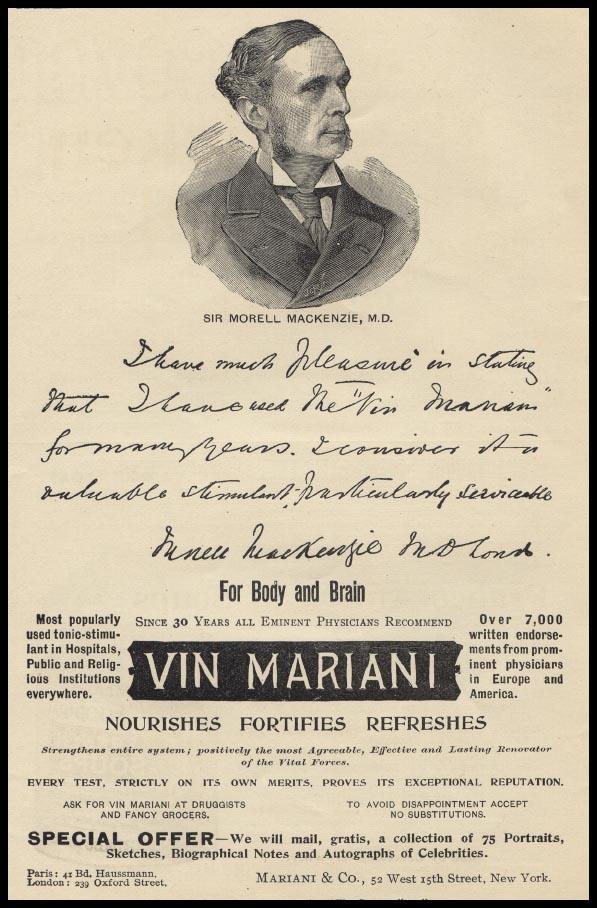 SIR MORELL MACKENZIE, M.D.
I have much pleasure in stating
that I have used the "Vin Mariani"
for many years. I consider it a
valuable stimulant, particularly serviceable
Morell MacKenzie M D Lond.
For Body and Brain
SINCE 30 YEARS ALL EMINENT PHYSICIANS RECOMMEND
Most popularly
used tonic-stimu-
lant in Hospitals,
Public and Relig-
ious Institutions
everywhere.
VIN MARIANI
Over 7,000
written endorse-
ments from prom-
inent physicians
in Europe and
America.
NOURISHES FORTIFIES REFRESHES
Strengthens entire system; positively the most Agreeable, Effective and Lasting Renovator
of the Vital Forces.
EVERY TEST, STRICTLY ON ITS OWN MERITS, PROVES ITS EXCEPTIONAL REPUTATION.
ASK FOR VIN MARIANI AT DRUGGISTS
AND FANCY GROCERS.
TO AVOID DISAPPOINTMENT ACCEPT
NO SUBSTITUTIONS.
SPECIAL OFFER—We will mail, gratis, a collection of 75 Portraits,
Sketches, Biographical Notes and Autographs of Celebrities.
Paris: 41 Bd. Haussmann.
London: 239 Oxford Street.
MARIANI & CO., 52 West 15th Street, New York.